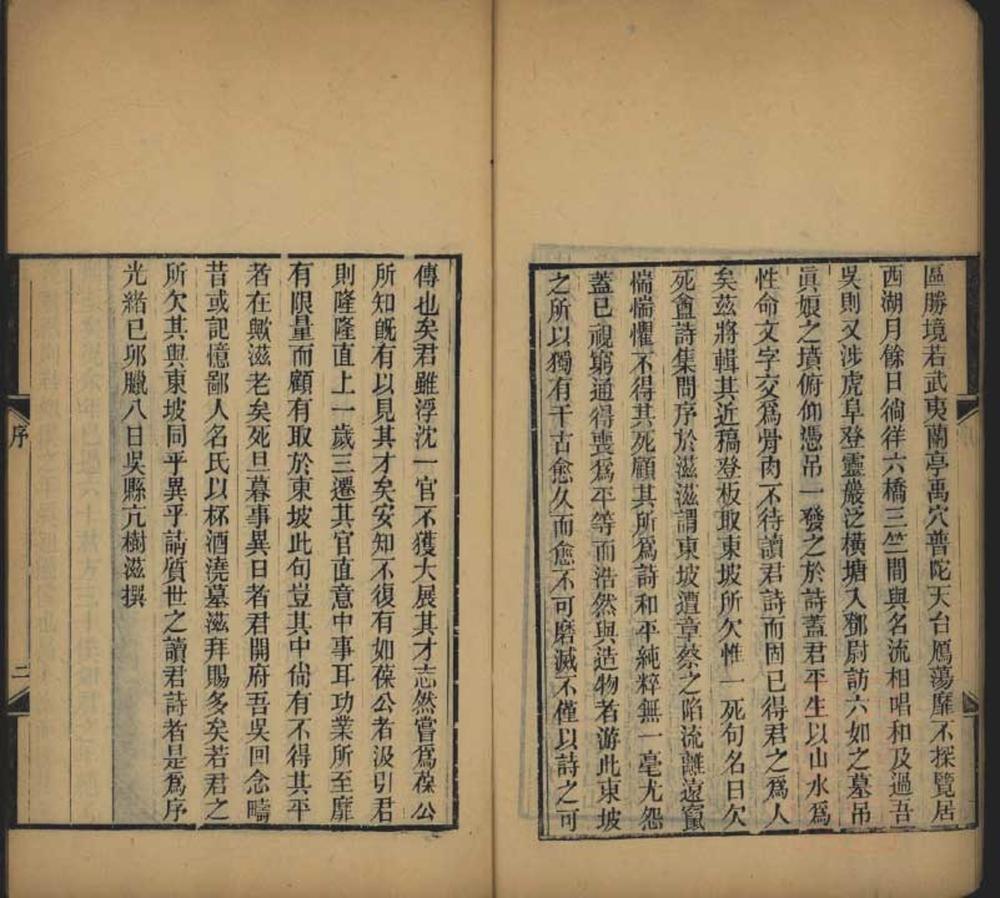 區勝境若武夷蘭亭禹穴普陀天台鴈蕩靡不探覽居
西湖月餘日徜徉六橋三竺間與名流相唱和及過吾
吳則又涉虎阜登靈巖泛橫塘入鄧尉訪六如之墓弔
眞娘之墳俯仰憑弔一發之於詩蓋君平生以山水爲
性命文字交爲骨肉不待讀君詩而固已得君之爲人
矣茲將輯其近稿登板取東坡所欠惟一死句名曰欠
死盦詩集問序於滋滋謂東坡遭章蔡之陷流離遠竄
惴惴懼不得其死顧其所爲詩和平純粹無一毫尤怨
蓋已視窮通得喪爲平等而浩然與造物者游此東坡
之所以獨有千古愈久而愈不可磨滅不僅以詩之可
傳也矣君雖浮沈一官不獲大展其才志然嘗爲葆公
所知旣有以見其才矣安知不復有如葆公者汲引君
則隆隆直上一歲三遷其官直意中事耳功業所至靡
有限量而顧有取於東坡此句豈其中尙有不得其平
者在歟滋老矣死旦暮事異日者君開府吾吳回念疇
昔或記憶鄙人名氏以杯酒澆墓滋拜賜多矣若君之
所欠其與東坡同乎異乎請質世之讀君詩者是爲序
光緒己卯臘八日吳縣亢樹滋撰
序
二